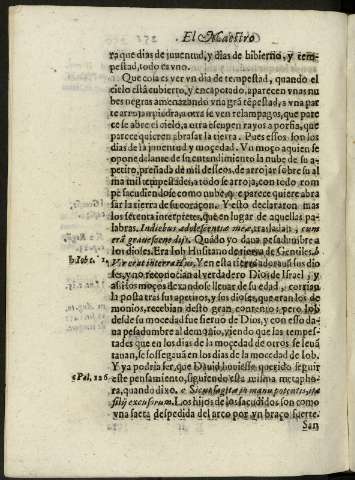 El Maestro
ra que dias de juuentud, y dias de hibierno, y tem-
pestad, todo es vno.
Que cosa es ver vn dia de tempestad, quando el
cielo està cubierto, y encapotado, aparecen vnas nu
bes negras amenazando vna grã tẽpestad, a vna par
te arrojan piedra, a otra se ven relampagos, que pare
ce se abre el cielo, a otra escupen rayos a porfia, que
parece quieren abrasar la tierra. Pues essos son los
dias de la juuentud y mocedad. Vn moço a quien se
opone delante de su entendimiento la nube de su a-
petito, preñada de mil desseos, de arrojar sobre su al
ma mil tempestades, a todo se arroja, con todo rom
pe sacudiendose como nube, y parece quiere abra
sar la tierra de su coraçon. Y esto declararon mas
los setenta interpretes, que en lugar de aquellas pa-
labras. Indiebus adolescentiæ meæ, trasladan, cum
erã grauescens dijs. Quãdo yo daua pesadumbre a
los dioses. Era Iob Husitano de tierra de Gentiles. b
Vir erat in terra Hus, Y en esta tierra adorauã sus dio
ses, y no reconocian al verdadero Dios de Israel, y
assi los moços dexandose lleuar de su edad, corrian
la posta tras sus apetitos, y sus dioses, que eran los de
monios, recebian desto gran contento; pero Iob
desde su mocedad fue sieruo de Dios, y con esso da-
ua pesadumbre al demonio, viendo que las tempes-
tades que en los dias de la moçedad de otros se leuã
tauan, se sossegauã en los dias de la mocedad de Iob.
Y ya podria ser, que Dauid huuiesse querido seguir
este pensamiento, siguiendo esta misma metapho-
ra, quando dixo. c Sicut sagittæ in manu potentis, ita
filij excusorum. Los hijos de los sacudidos son como
vna saeta despedida del arco por vn braço fuerte.
San
b Iob c. 1.
c Psal. 126.